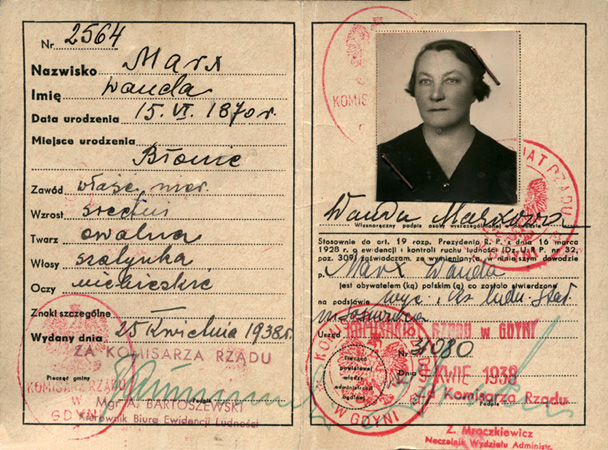 Nr. 2564
Nazwisko Marx
Imię Wanda
Data urodzenia 15. VI. 1870 r.
Miejsce urodzenia
Błonie
Zawód właśc.
Wzrost średni
Twarz owalna
Włosy szatynka
Oczy niebieskie
Znaki szczególne
Wydany dnia 25 Kwietnia 1938 r.
ZA KOMISARZA RZĄDU
Pieczęć gminy
KOMISARZ RZĄDU
W GDYNI
Podpis
Mgr A. BARTOSZEWSKI
Kierownik Biura Ewidencji Ludności
KOMISA
RZĄDU
Wanda Marxowa
Własnoręczny podpis osoby
Stosownie do art. 19 rozp. Prezydenta R. P. z dnia 16 marca
1928 r. o ewidencji i kontroli ruchu ludności (Dz. U. R. P. nr. 32,
poz. 309) zaświadczam, że wymieniony(a) w niniejszym dowodzie
p. Marx Wanda
jest obywatelem (ką) polskim (ą) co zostało stwierdzone
na podstawie wyc. ludn. Stał.
Urząd KOMISARIAT RZĄDU w GDYNI
Nr
Dnia KWIE 1938
Pieczęć
powiatowej
władzy
administracji
ogólnej
W GDYNI
Komisarza Rządu
Podpis
Z. Mroczkiewicz
Naczelnik Wydziału Administr.